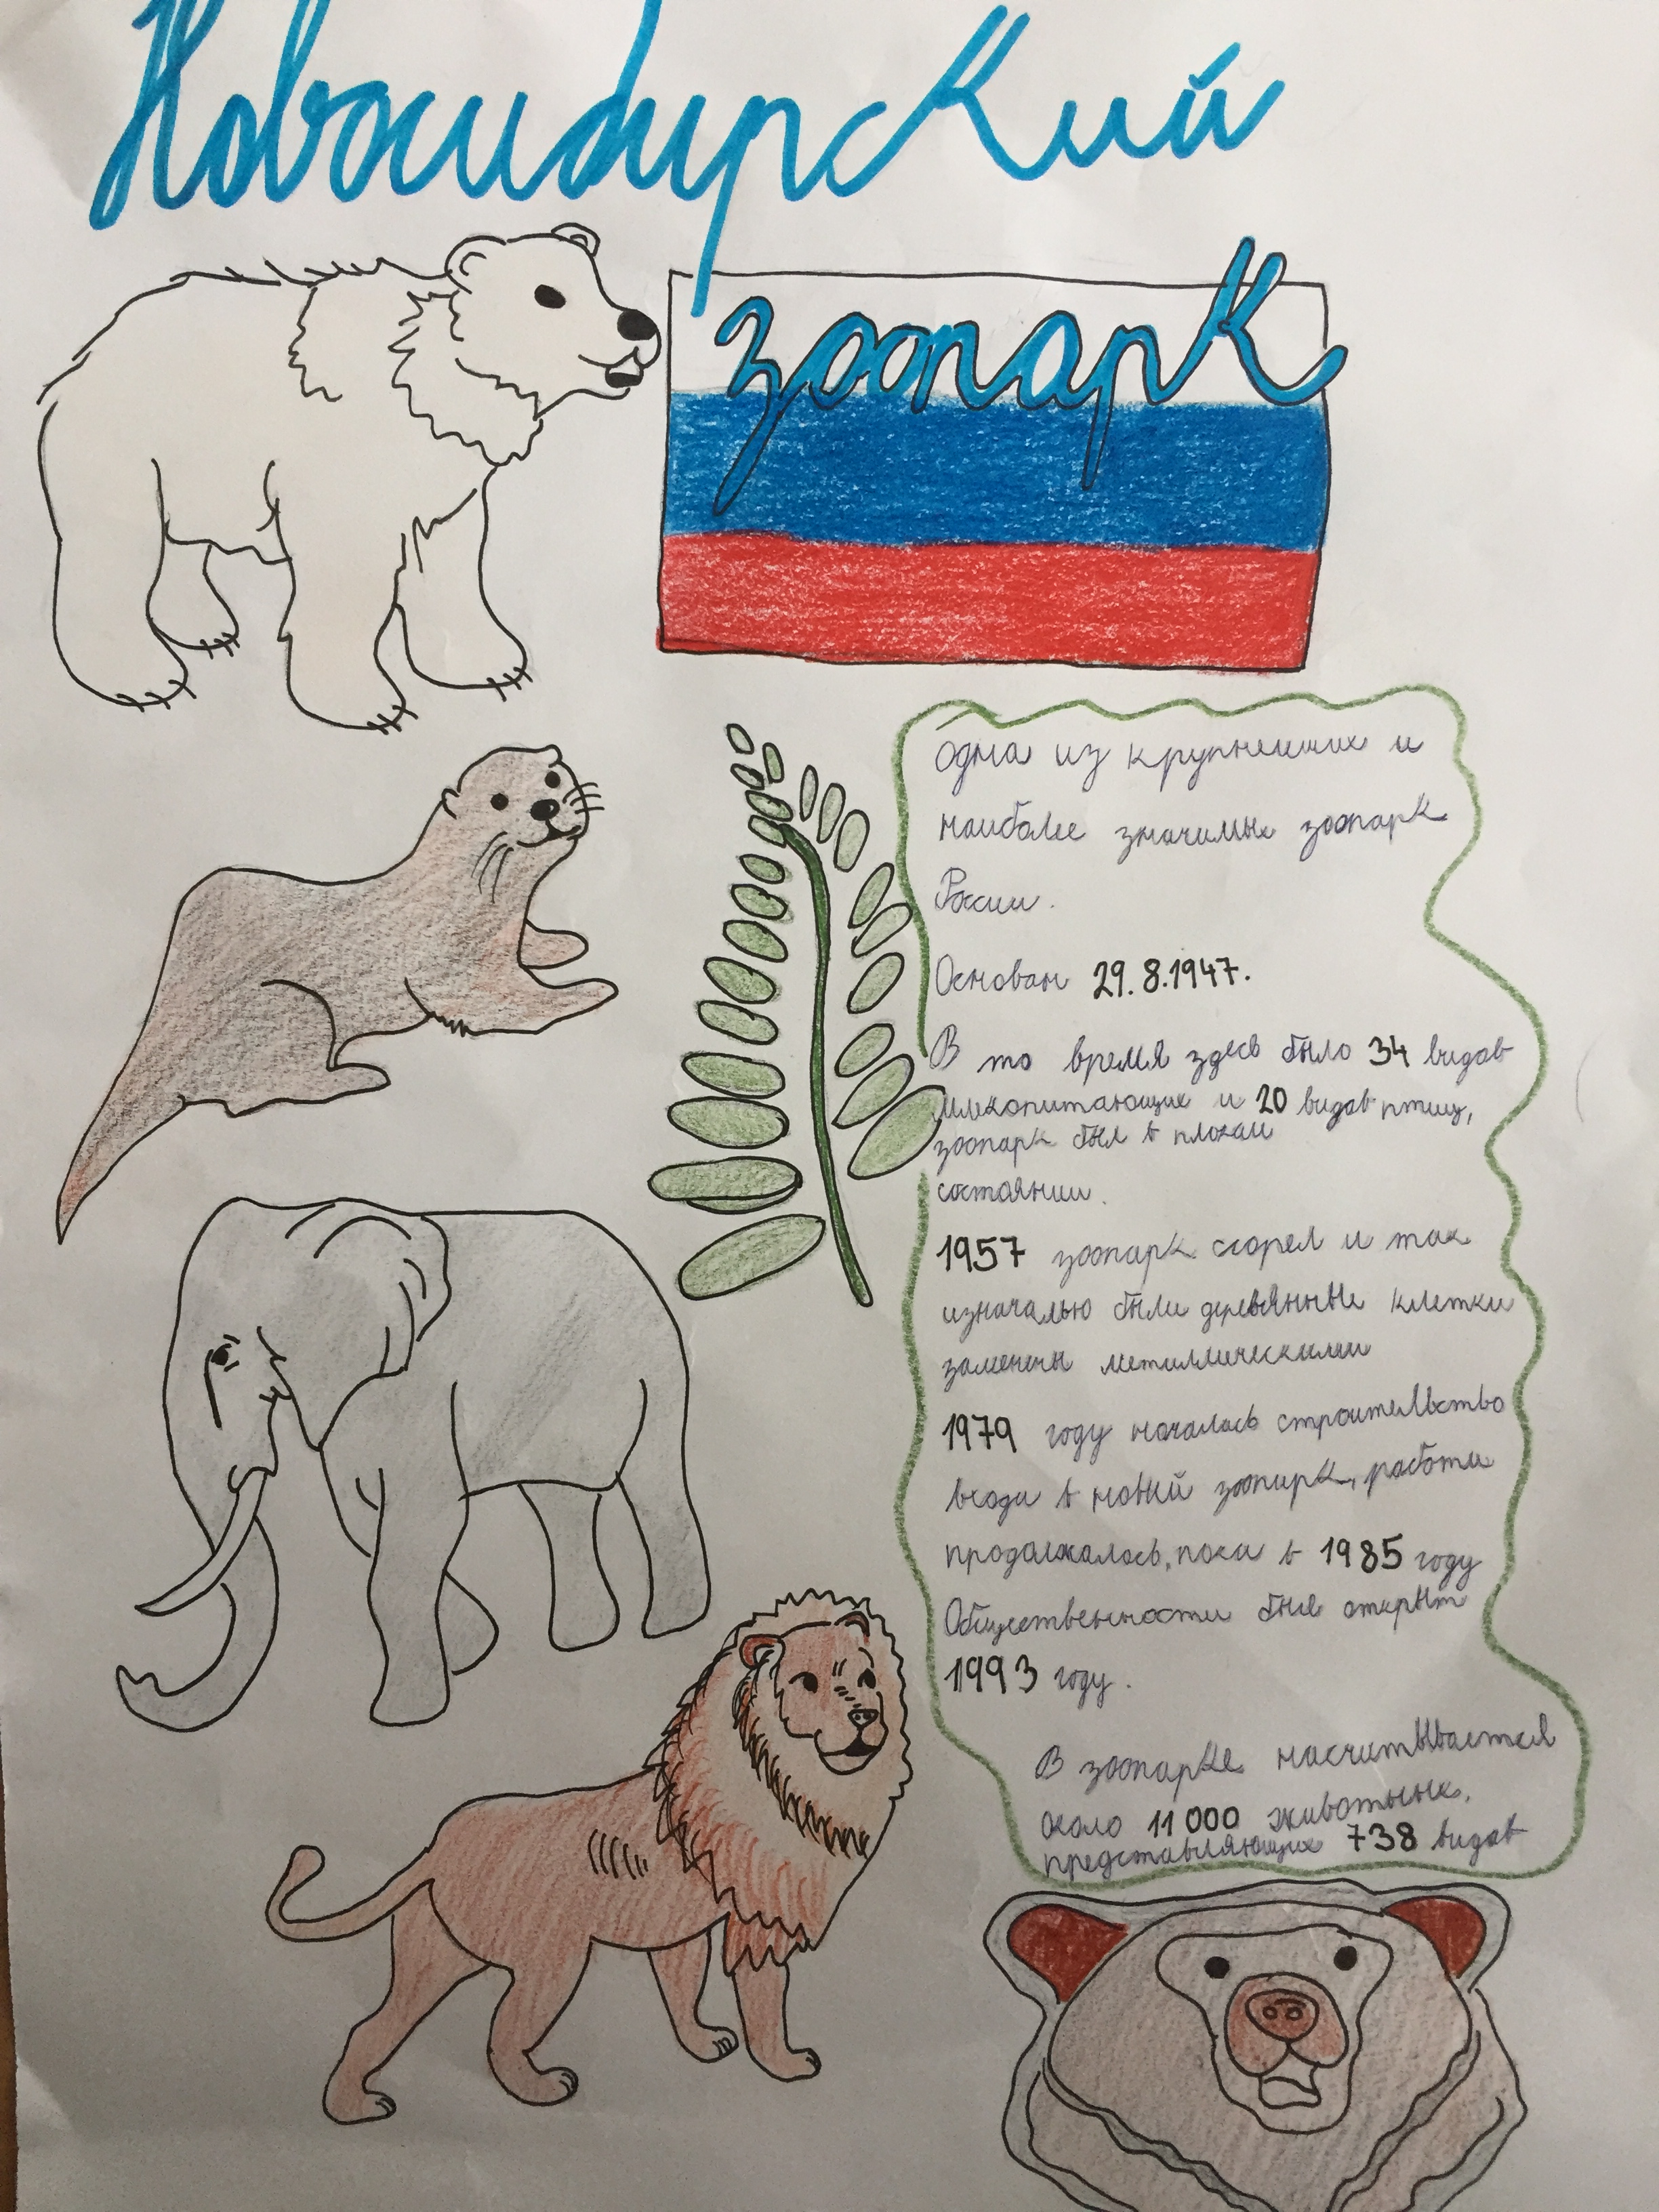 Новосибирский
зоопарк
одна из крупнеиших и
наиболее значимых зоопарк
России.
Основан 29.8.1947.
В то время здесь было 34 видов
млекопитающих и 20 видов птиц,
зоопарк был в плохом
состоянии.
1957 зоопарк сгорел и так
изначалью были деревянные клетки
заменены металлическими
1979 году началось строительство
входа в новый зоопарк, работы
продолжалось, пока в 1985 году
Общественности был открыт
1993 году.
В зоопарке насчитывается
около 11 000 животных,
представляющих 738 видов